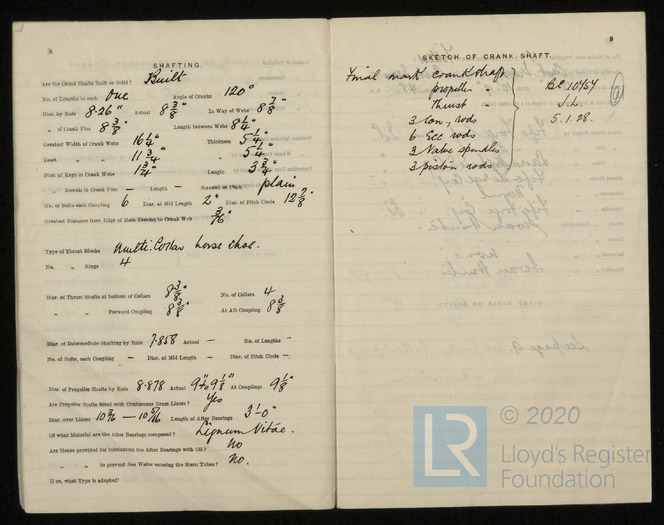 8
SHAFTING.
Are the Crank Shafts Built or Solid? Built
No. of Lengths in each One Angle of Cranks 120°
Diar. by Rule 8.26" Actual 8 3/8" In Way of Webs 8 7/8"
„ of Crank Pins 8 3/8" Length between Webs 8 1/4"
Greatest Width of Crank Webs 16 1/4" Thickness 5 1/4"
Least „ „ 11 3/4" „ 5 1/4"
Diar. of Keys in Crank Webs 1 3/4" Length 3 3/4"
„ Dowels in Crank Pins — Length — Screwed or Plain plain
No. of Bolts each Coupling 6 Diar. at Mid Length 2" Diar. of Pitch Circle 12 7/8"
Greatest Distance from Edge of Main Bearing to Crank Web 3/16"
Type of Thrust Blocks Multi-Collar horse shoe.
No. „ Rings 4
Diar. of Thrust Shafts at bottom of Collars 8 3/8" No. of Collars 4
„ „ Forward Coupling 8 3/8" At Aft Coupling 8 3/8
Diar. of Intermediate Shafting by Rule 7.858 Actual — No. of Lengths —
No. of Bolts, each Coupling — Diar. at Mid Length — Diar. of Pitch Circle —
Diar. of Propeller Shafts by Rule 8.878 Actual 9" to 9 1/8" At Couplings 9 1/8"
Are Propeller Shafts fitted with Continuous Brass Liners? Yes
Diar. over Liners — Length of After Bearings 3'-0"
Of what Material are the After Bearings composed? Lignum Vitae.
Are Means provided for lubricating the After Bearings with Oil? No
„ „ to prevent Sea Water entering the Stern Tubes? No.
If so, what Type is adopted?
9
SKETCH OF CRANK SHAFT.
Final mark crankshaft
propeller "
Thrust "
3 Con., rods
6 Ecc rods
3 Valve spindles
3 piston rods
BC 10457
J.L.
5.1.28.
LR
© 2020
Lloyd's Register
Foundation